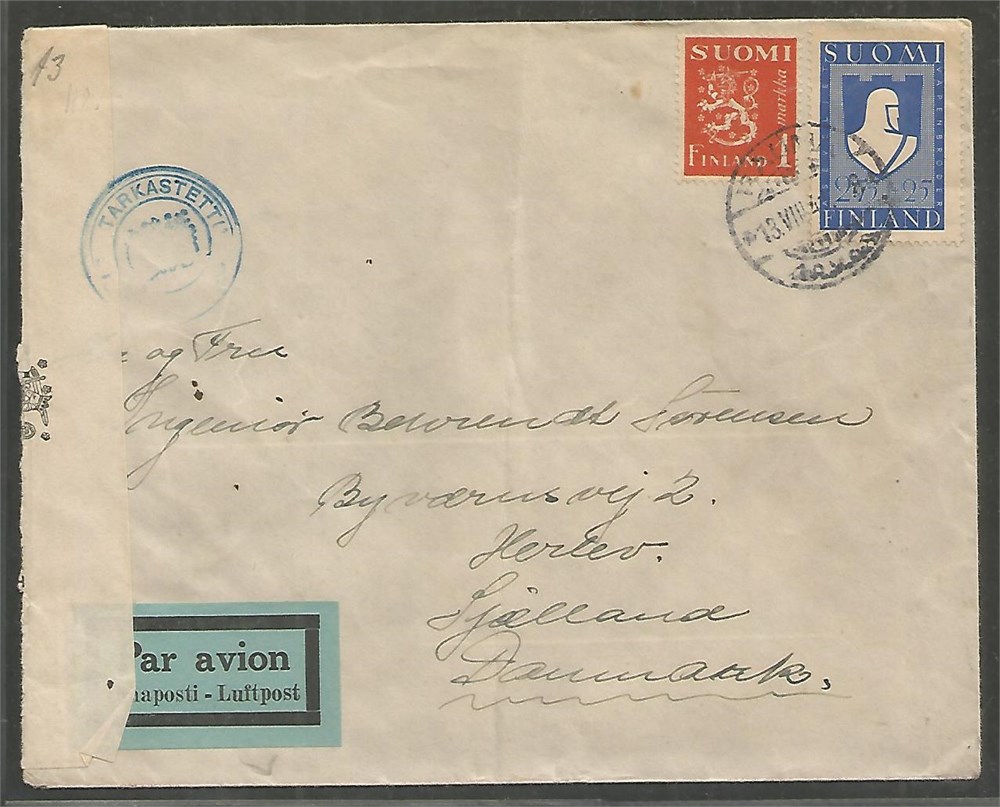 13
TARKASTETTU
SUOMI
markka
FINLAND 1
SUOMI
VAPENBRÖDER
2.75+25
FINLAND
13.VIII.4
og Fru
Ingeniør Behrendt Sørensen
Byværnsvej 2.
Herlev.
Sjælland
Danmark.
Par avion
naposti - Luftpost